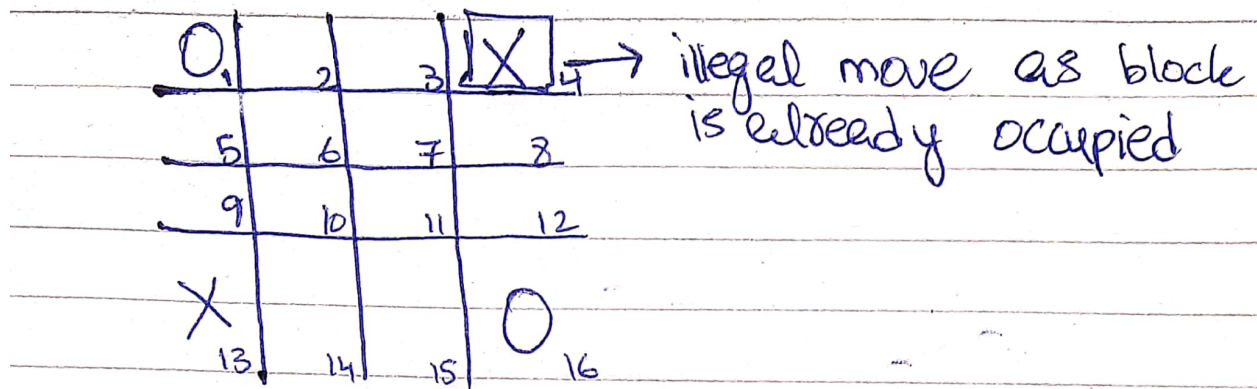 O 1 2 3 X 4 → illegal move as block
is already occupied
5 6 7 8
9 10 11 12
X O
13 14 15 16